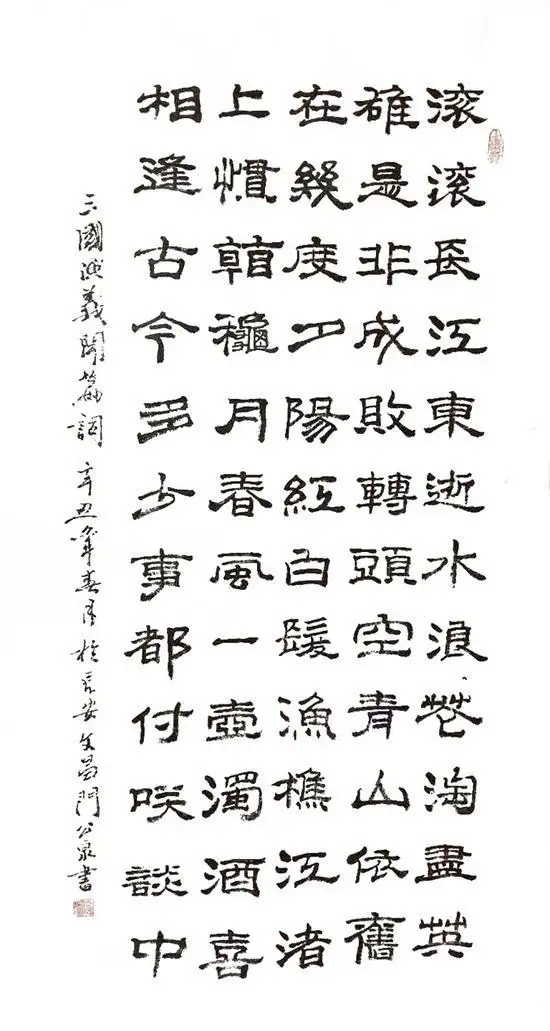 滚滚長江東逝水浪花淘盡英
雄是非成敗轉頭空青山依舊
在幾度夕陽紅白髮漁樵江渚
上慣看穐月春風一壺濁酒喜
相逢古今多少事都付咲談中
三國演義開篇詞 辛丑年春月於長安文昌門公泉書